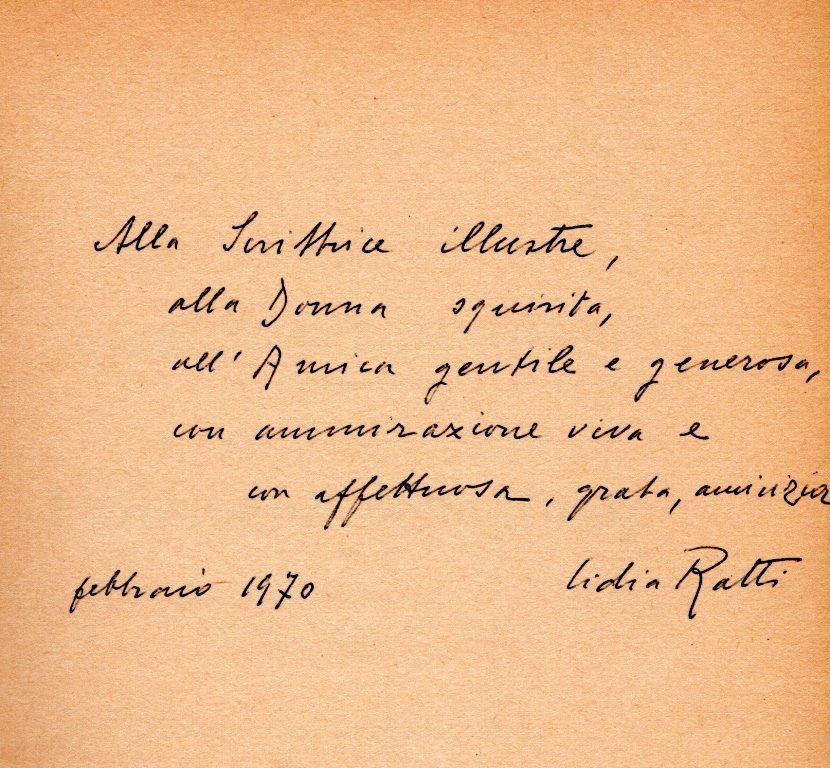 Alla Scrittrice illustre,
alla Donna squisita,
all' Amica gentile e generosa,
con ammirazione viva e
con affettuosa, grata, amicizia
febbraio 1970 lidia Ratti